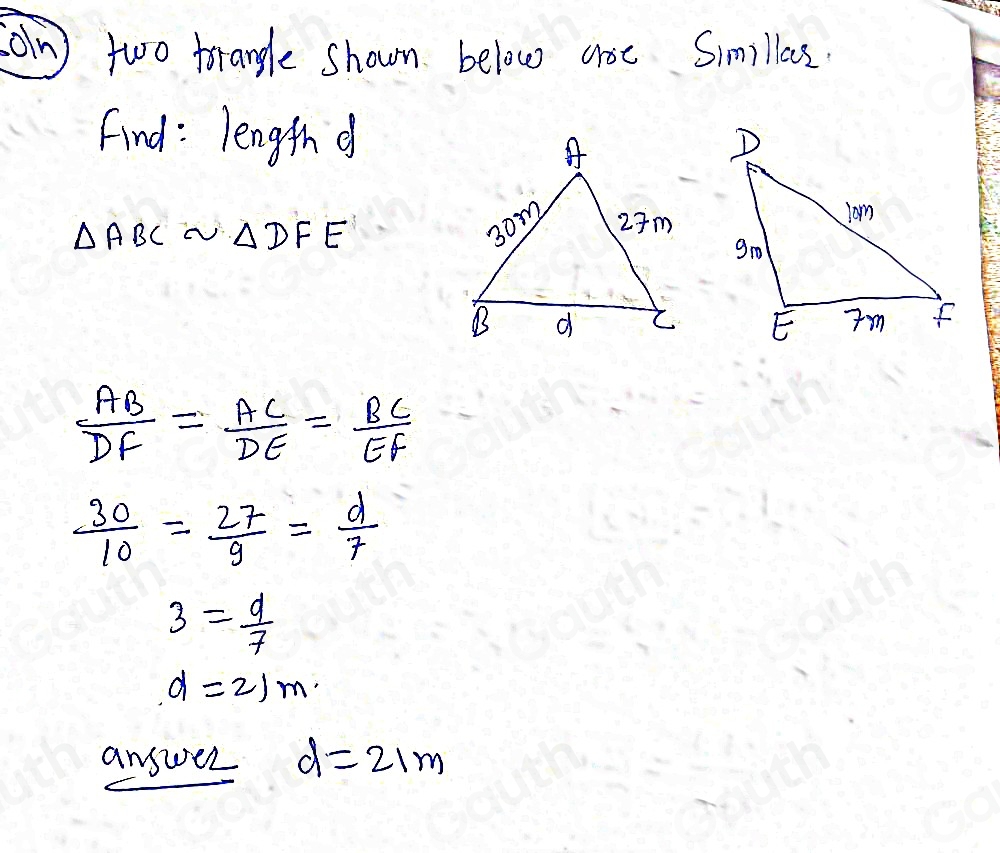 Soln two triangle shown below are Simillar.
Find: length d
△ABC ~ △DFE
A
30m
27m
B
d
C
D
9m
10m
E
7m
F
AB/DF = AC/DE = BC/EF
30/10 = 27/9 = d/7
3 = d/7
d = 21m.
answer d = 21m
Gauth